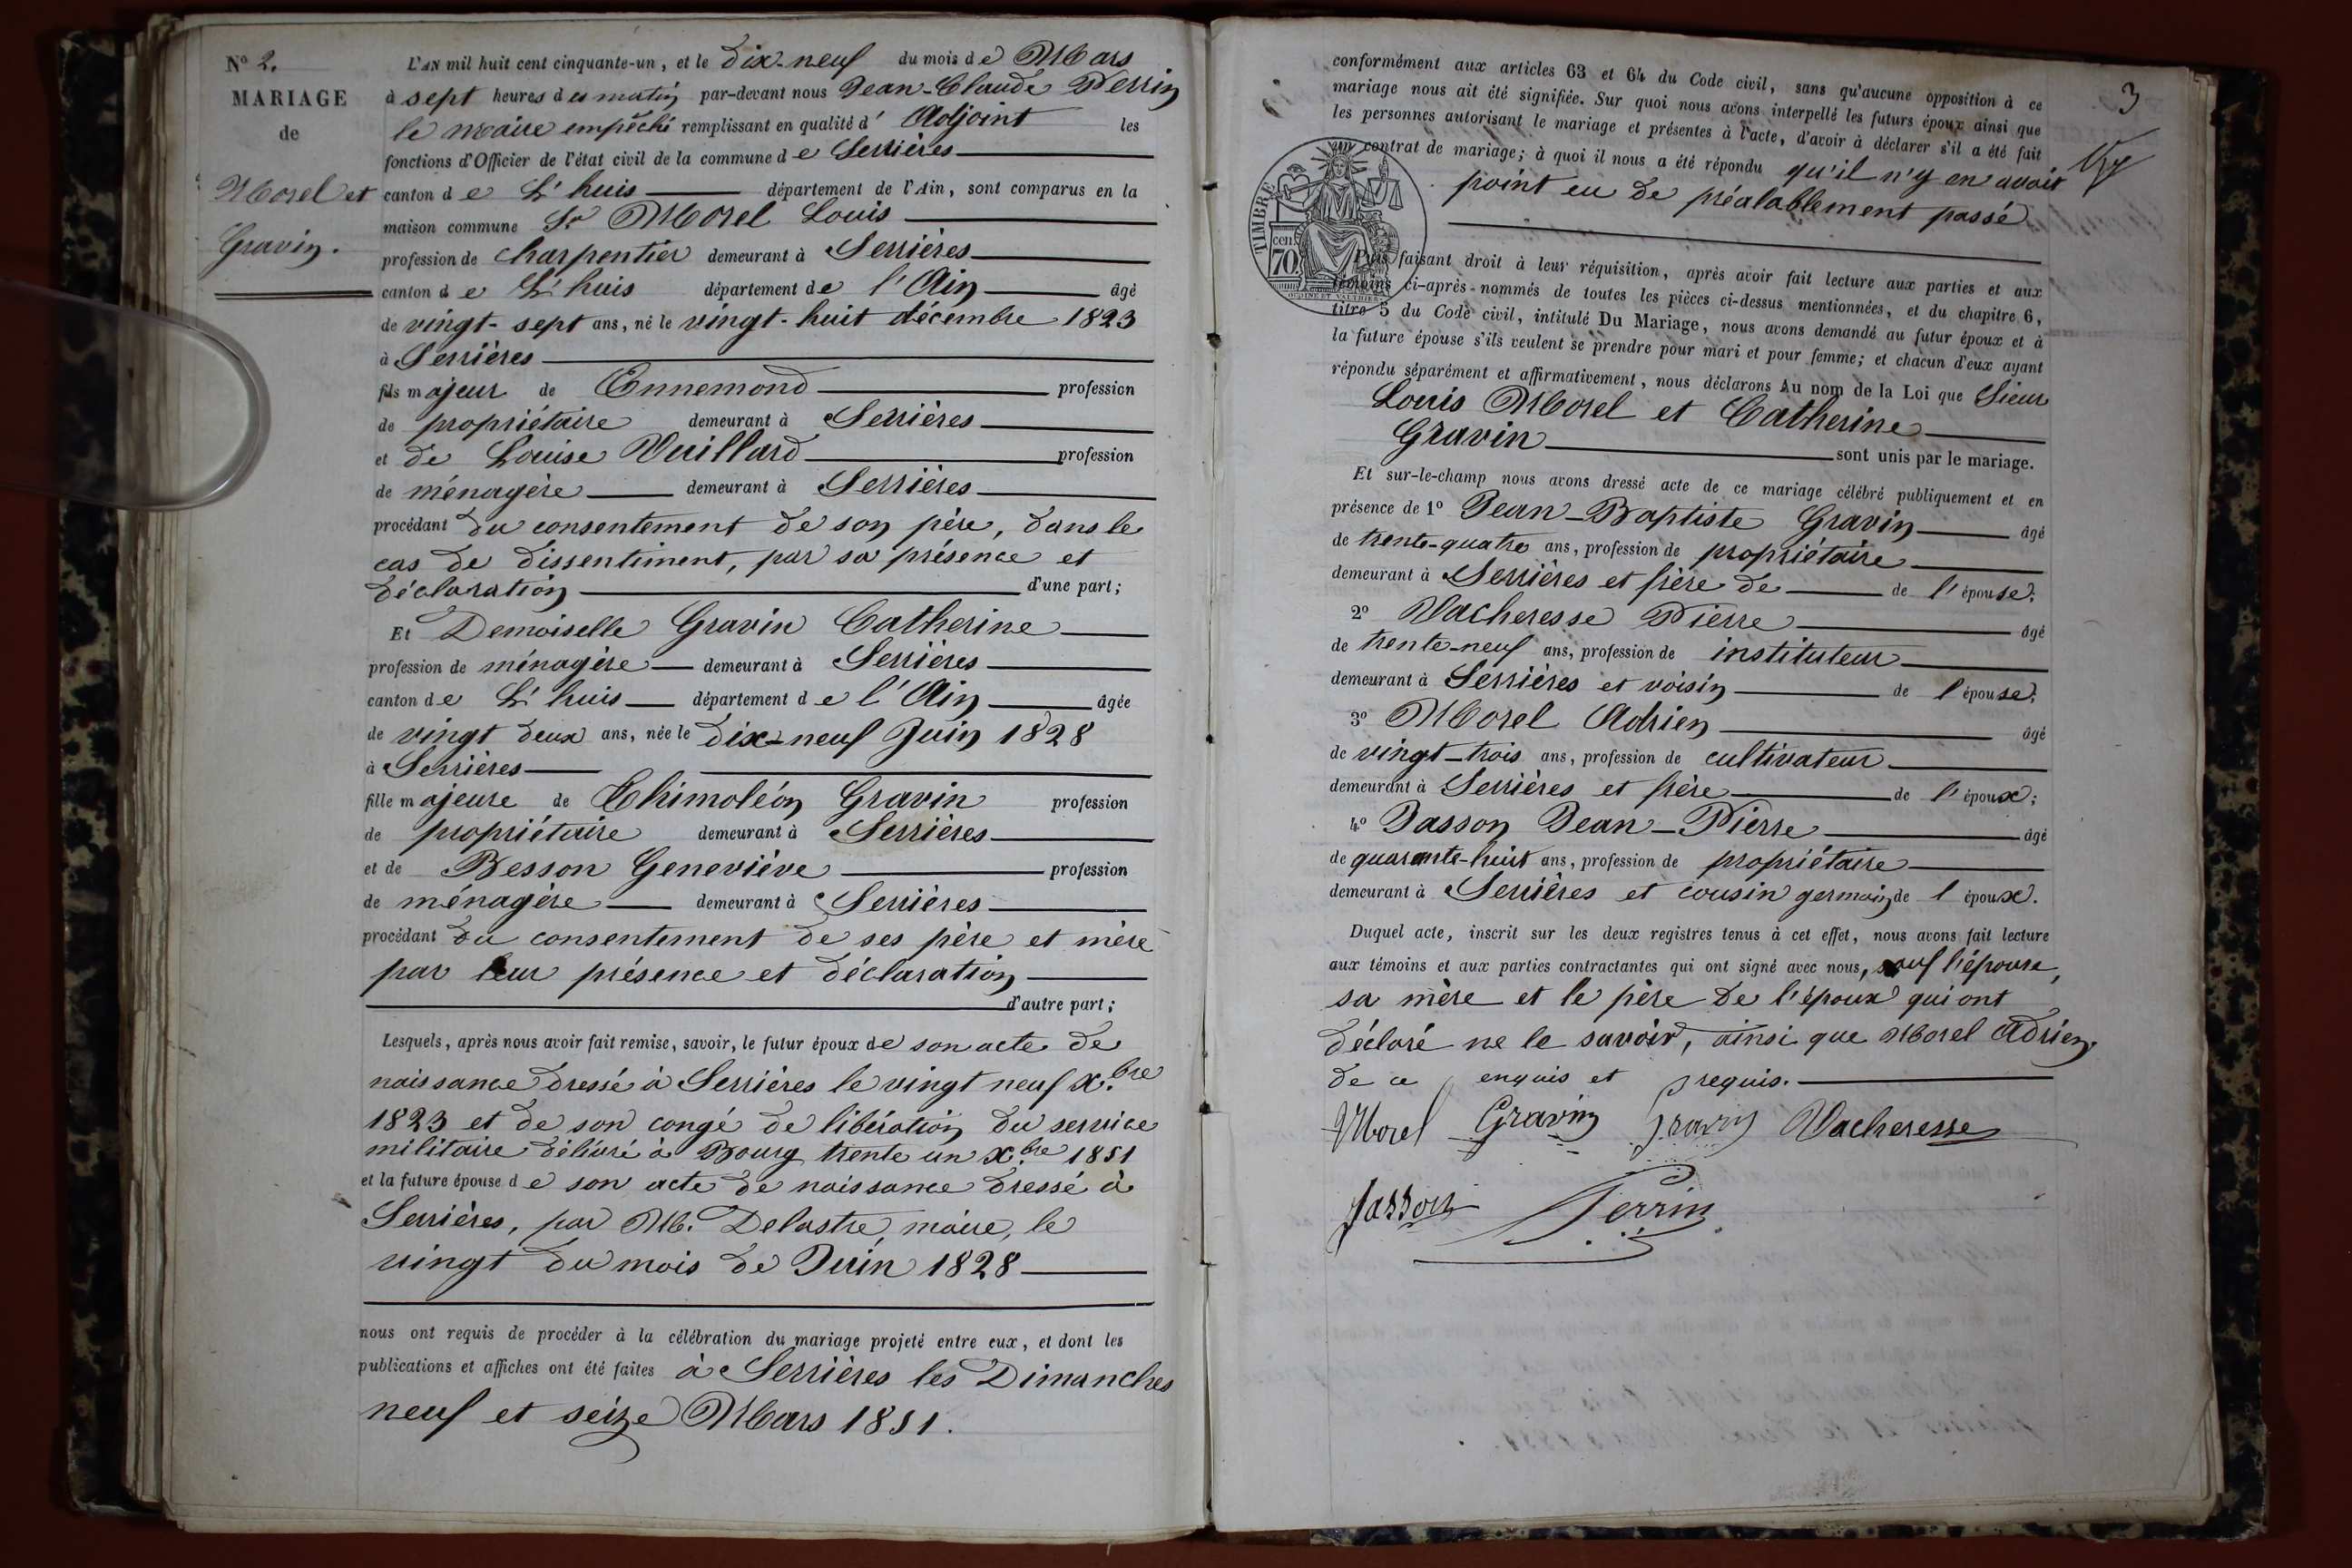 N° 2.
MARIAGE
de
Morel et
Gravin.
L'AN mil huit cent cinquante-un, et le dix-neuf du mois de Mars
à sept heures du matin par-devant nous Jean-Claude Perrin
le maire empêché remplissant en qualité d' Adjoint les
fonctions d'Officier de l'état civil de la commune de Serrières
canton de L'huis département de l'Ain, sont comparus en la
maison commune Sr Morel Louis
profession de charpentier demeurant à Serrières
canton de L'huis département de l'Ain âgé
de vingt-sept ans, né le vingt-huit décembre 1823
à Serrières
fils majeur de Ennemond profession
de propriétaire demeurant à Serrières
et de Louise Vuillard profession
de ménagère demeurant à Serrières
procédant du consentement de son père, dans le
cas de dissentiment, par sa présence et
déclaration d'une part;
Et Demoiselle Gravin Catherine
profession de ménagère demeurant à Serrières
canton de L'huis département de l'Ain âgée
de vingt deux ans, née le dix-neuf Juin 1828
à Serrières
fille majeure de Thimoléon Gravin profession
de propriétaire demeurant à Serrières
et de Besson Geneviève profession
de ménagère demeurant à Serrières
procédant du consentement de ses père et mère
par leur présence et déclaration
d'autre part;
Lesquels, après nous avoir fait remise, savoir, le futur époux de son acte de
naissance dressé à Serrières le vingt neuf Xbre
1823 et de son congé de libération du service
militaire délivré à Bourg trente un Xbre 1851
et la future épouse de son acte de naissance dressé à
Serrières, par M. Delastre, maire, le
vingt du mois de Juin 1828
nous ont requis de procéder à la célébration du mariage projeté entre eux, et dont les
publications et affiches ont été faites à Serrières les Dimanches
neuf et seize Mars 1851.
3
conformément aux articles 63 et 64 du Code civil, sans qu'aucune opposition à ce
mariage nous ait été signifiée. Sur quoi nous avons interpellé les futurs époux ainsi que
les personnes autorisant le mariage et présentes à l'acte, d'avoir à déclarer s'il a été fait
un contrat de mariage; à quoi il nous a été répondu qu'il n'y en avait
point eu de préalablement passé
TIMBRE
70 cen.
Puis faisant droit à leur réquisition, après avoir fait lecture aux parties et aux
témoins ci-après nommés de toutes les pièces ci-dessus mentionnées, et du chapitre 6,
titre 5 du Code civil, intitulé Du Mariage, nous avons demandé au futur époux et à
la future épouse s'ils veulent se prendre pour mari et pour femme; et chacun d'eux ayant
répondu séparément et affirmativement, nous déclarons Au nom de la Loi que Sieur
Louis Morel et Catherine
Gravin sont unis par le mariage.
Et sur-le-champ nous avons dressé acte de ce mariage célébré publiquement et en
présence de 1° Jean-Baptiste Gravin âgé
de trente-quatre ans, profession de propriétaire
demeurant à Serrières et frère de de l'épouse;
2° Vacheresse Pierre âgé
de trente-neuf ans, profession de instituteur
demeurant à Serrières et voisin de l'épouse;
3° Morel Adrien âgé
de vingt-trois ans, profession de cultivateur
demeurant à Serrières et frère de l'époux;
4° Jasson Jean-Pierre âgé
de quarante-huit ans, profession de propriétaire
demeurant à Serrières et cousin germain de l époux.
Duquel acte, inscrit sur les deux registres tenus à cet effet, nous avons fait lecture
aux témoins et aux parties contractantes qui ont signé avec nous, sauf l'épouse,
sa mère et le père de l'époux qui ont
déclaré ne le savoir, ainsi que Morel Adrien,
de ce enquis et requis.
Morel Gravin Gravin Vacheresse
Jasson Perrin